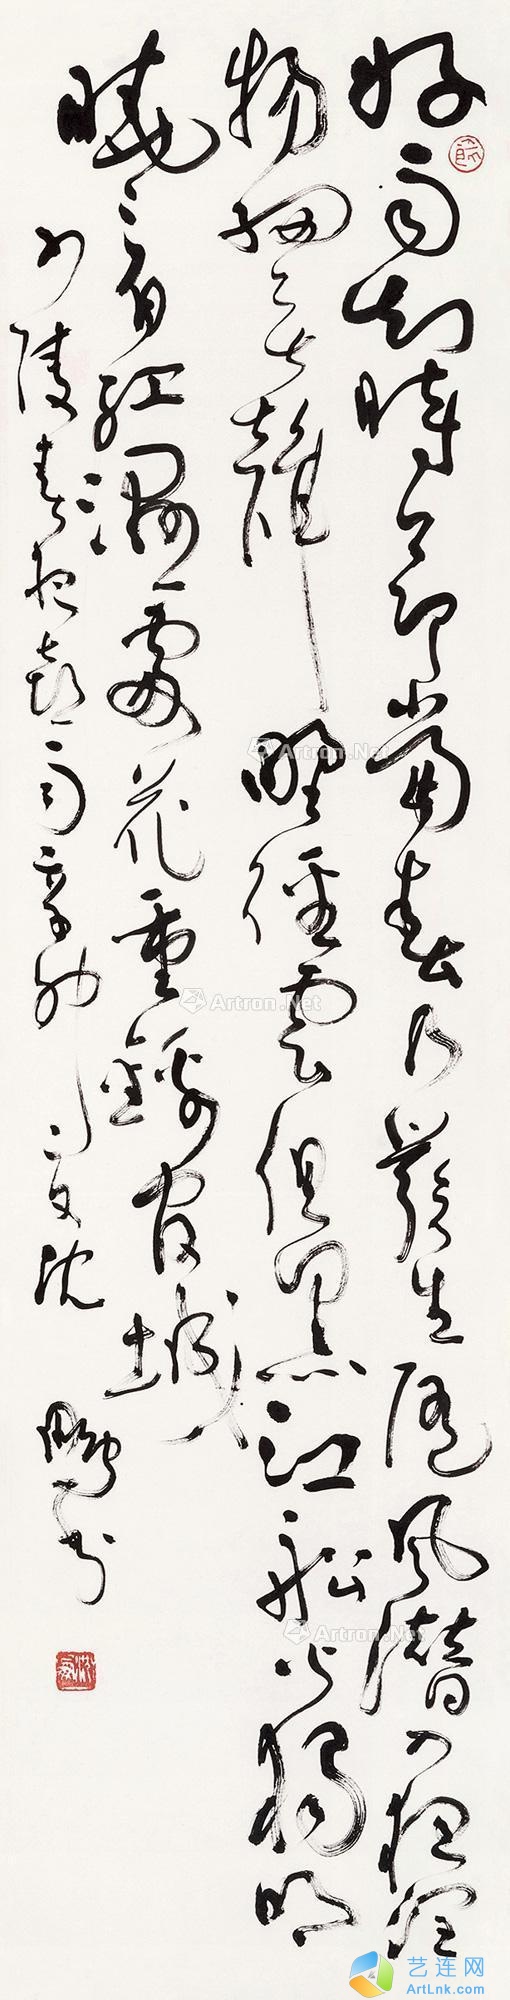 好雨知時節當春乃發生隨風潛入夜潤
物細無聲野徑雲俱黑江船火獨明
曉看紅濕處花重錦官城
少陵春夜喜雨辛卯夏沈鵬書
Artron.Net
Artron.Net
Artron.Net
艺连网
ArtLnk.com